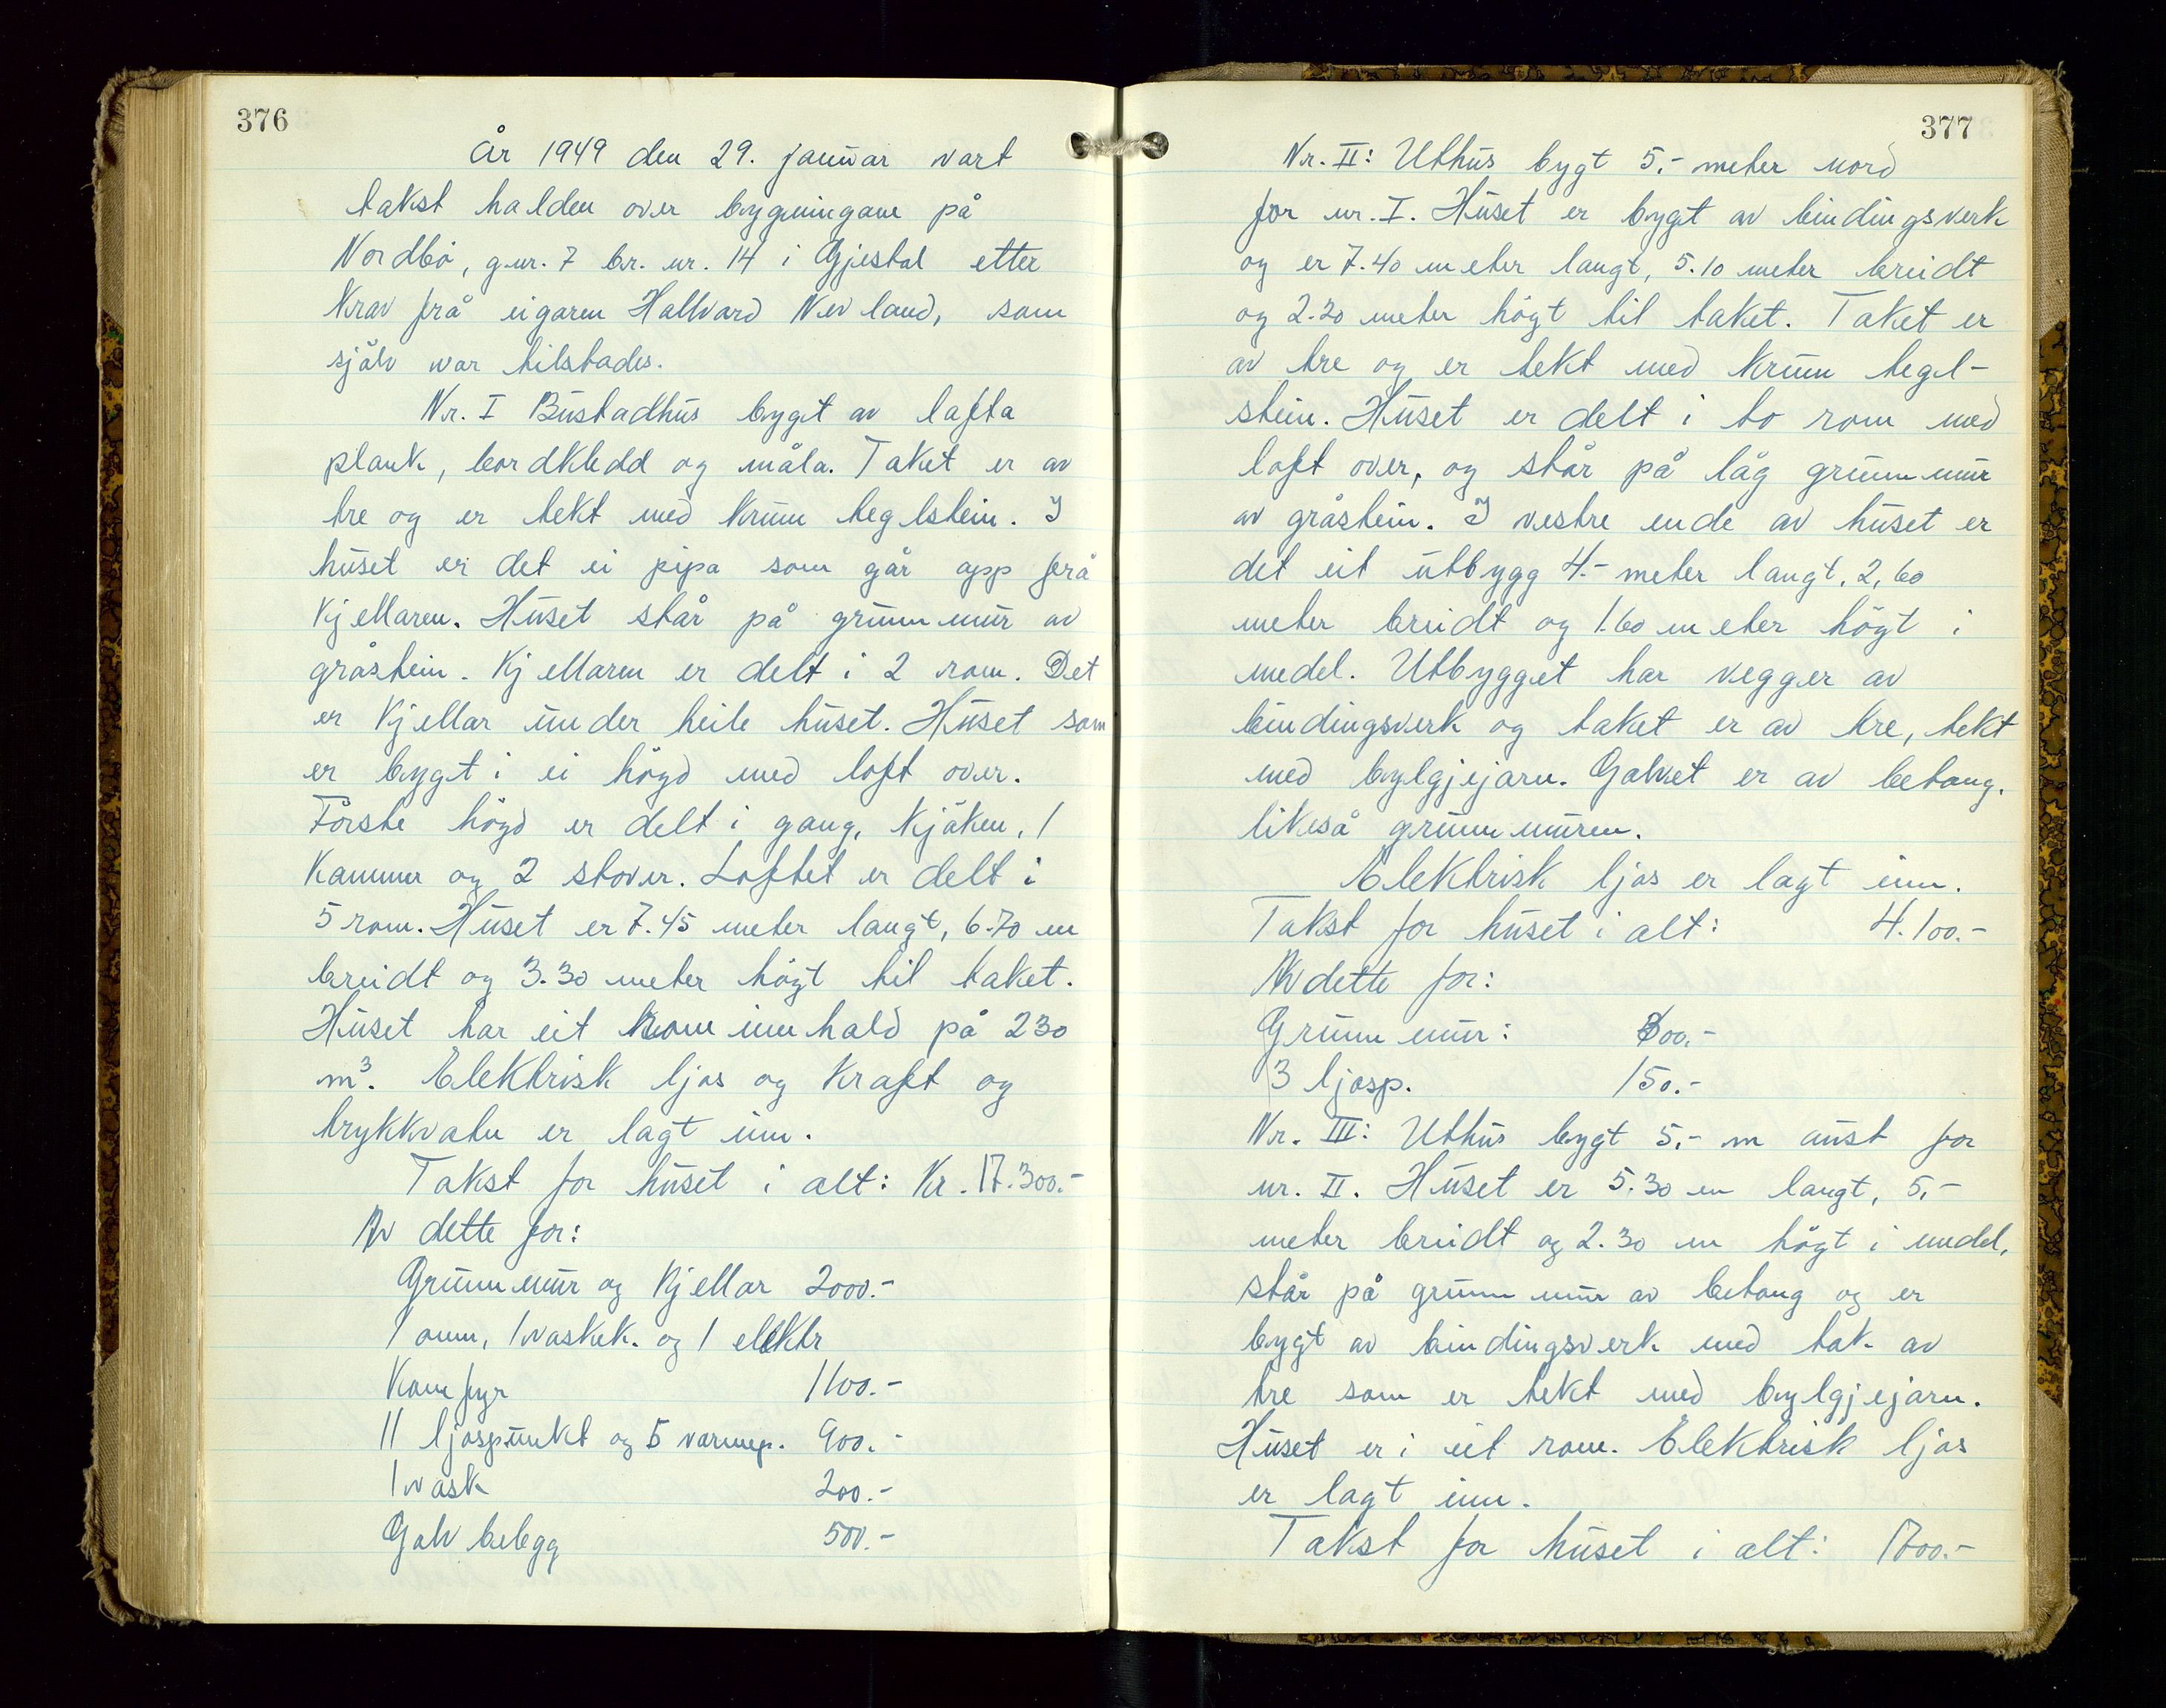 376
År 1949 den 29. januar vart
takst halden over bygningane på
Nordbö, g.nr. 7 br. nr. 14 i Gjestal etter
krav frå eigaren Hallvard Nevland, som
sjölv var tilstades.
Nr. I Bustadhus bygt av lafta
plank, bordkledd og måla. Taket er av
tre og er tekt med krum teglstein. I
huset er det ei pipa som går opp frå
kjellaren. Huset står på grunnmur av
gråstein. Kjellaren er delt i 2 rom. Det
er kjellar under heile huset. Huset som
er bygt i ei högd med loft over.
Förste högd er delt i gang, kjöken, 1
kammer og 2 stover. Loftet er delt i
5 rom. Huset er 7.45 meter langt, 6.70 m
breidt og 3.30 meter högt til taket.
Huset har eit rominnhald på 230
m³. Elektrisk ljos og kraft og
trykkvatn er lagt inn.
Takst for huset i alt: Kr. 17.300.-
Av dette for:
Grunnmur og kjellar 2000.-
1 omn, 1 vaskek. og 1 elektr
komfyr 1100.-
11 ljospunkt og 5 varmep. 900.-
1 vask 200.-
Golvbelegg 500.-
377
Nr. II: Uthus bygt 5.- meter nord
for nr. I. Huset er bygt av bindingsverk
og er 7.40 meter langt, 5.10 meter breidt
og 2.20 meter högt til taket. Taket er
av tre og er tekt med krum tegl-
stein. Huset er delt i to rom med
loft over, og står på låg grunnmur
av gråstein. I vestre ende av huset er
det eit utbygg 4.- meter langt, 2,60
meter breidt og 1.60 meter högt i
medel. Utbygget har vegger av
bindingsverk og taket er av tre, tekt
med bylgjejarn. Golvet er av betong,
likeså grunnmuren.
Elektrisk ljos er lagt inn.
Takst for huset i alt: 4.100.-
Av dette for:
Grunnmur: 00.-
3 ljosp. 150.-
Nr. III: Uthus bygt 5.- m aust for
nr. II. Huset er 5.30 m langt, 5.-
meter breidt og 2.30 m högt i medel,
står på grunnmur av betong og er
bygt av bindingsverk med tak av
tre som er tekt med bylgjejarn.
Huset er i eit rom. Elektrisk ljos
er lagt inn.
Takst for huset i alt: 1700.-